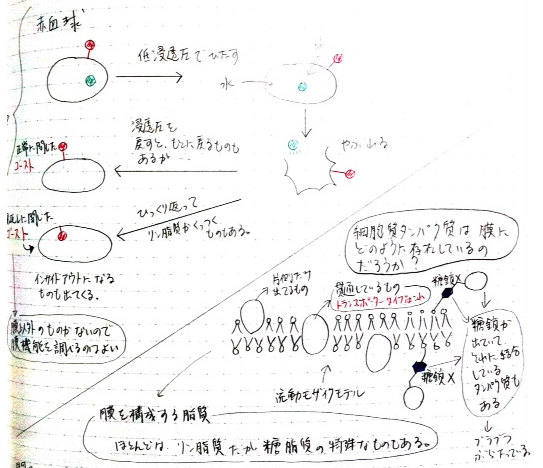 赤血球
低浸透圧でひたす
水
やぶれる
浸透圧を
戻すと、もとに戻るものも
あるが…
正常に閉じた
ゴースト
ひっくり返って
リン脂質がくっつく
ものもある。
逆に閉じた
ゴースト
インサイドアウトになる
ものも出てくる。
膜以外のものがないので
膜機能を調べるのによい
細胞質タンパク質は膜に
どのように存在しているの
だろうか?
片側だけ
出てるもの
貫通しているもの
トランスポータータイプはこれ
糖鎖X
糖鎖X
糖鎖が
出ていて、
それに結合
している
タンパク質も
ある
ブラブラ
ぶらさがっている。
流動モザイクモデル
膜を構成する脂質
ほとんどは、リン脂質だが糖脂質の特殊なものもある。